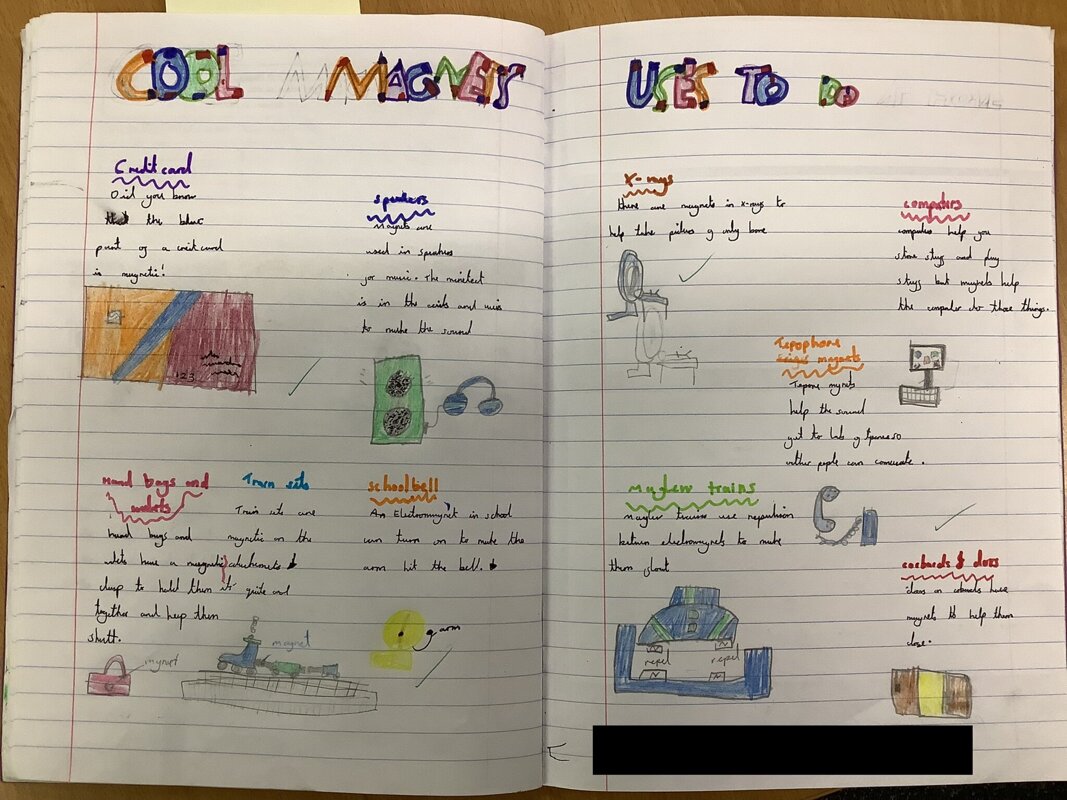 COOL MAGNETS
Credit card
Did you know
the blac
part of a creit card
is magnetic!
123
speakers
Magnets are
used in speakers
for music. The
is in the and
to make the sound
Hand bags and
wallets
hand bags and
have a magnetic
clasp to hold them
together and keep them
shutt.
magnet
Train sets
Train sets are
magnetic on the
it guite and
magnet
school bell
An Electromagnet in school
can turn on to make the
arm hit the bell.
arm
USES TO DO
X-rays
there are magnets in x-rays to
help take of only bone
computers
computers help you
store stuff and play
stuff but magnets help
the computer do those things.
magnets
help the sound
get to of so
people can
Maglev trains
Maglev trains use repulsion
between electromagnets to make
them float
repel
repel
N
N
doors on have
magnets to help them
close.